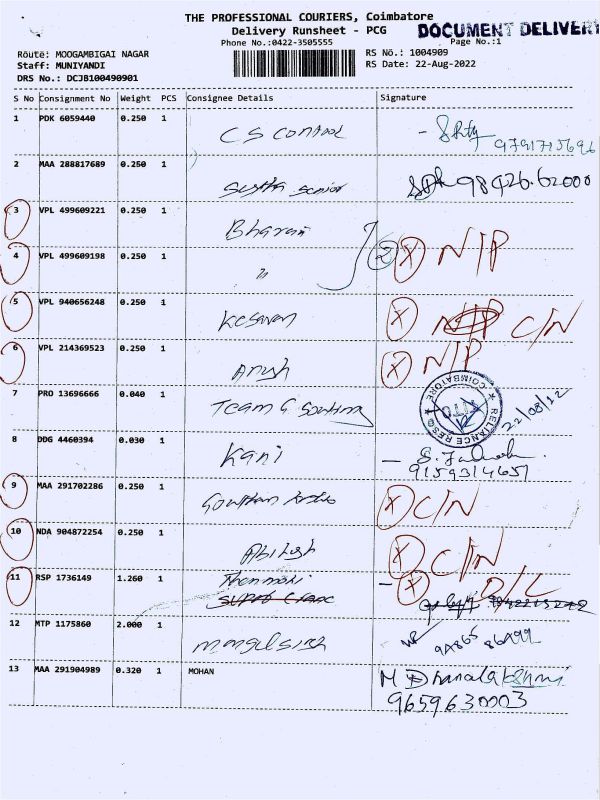 THE PROFESSIONAL COURIERS, Coimbatore
Delivery Runsheet - PCG
DOCUMENT DELIVERY
Phone No.:0422-3505555
Page No.:1
Route: MOOGAMBIGAI NAGAR
RS No.: 1004909
Staff: MUNIYANDI
RS Date: 22-Aug-2022
DRS No.: DCJB100490901
S No Consignment No Weight PCS Consignee Details Signature
1 PDK 6059440 0.250 1 CS Control 9791715696
2 MAA 288817689 0.250 1 98426.62000
3 VPL 499609221 0.250 1 Bharani
4 VPL 499609198 0.250 1 " 2 X N/P
5 VPL 940656248 0.250 1 Kesavan X C/N
6 VPL 214369523 0.250 1 Anush X N/P
7 PRO 13696666 0.040 1 Team G COIMBATORE RELIANCE 22/08/22
8 DDG 4460394 0.030 1 Kani 9159314657
9 MAA 291702286 0.250 1 Gowtham X C/N
10 NDA 904872254 0.250 1 Abilash X C/N
11 RSP 1736149 1.260 1 Thenmozhi X D/L
12 MTP 1175860 2.000 1 Mangal Singh
13 MAA 291904989 0.320 1 MOHAN M Dhanalakshmi
9659630003